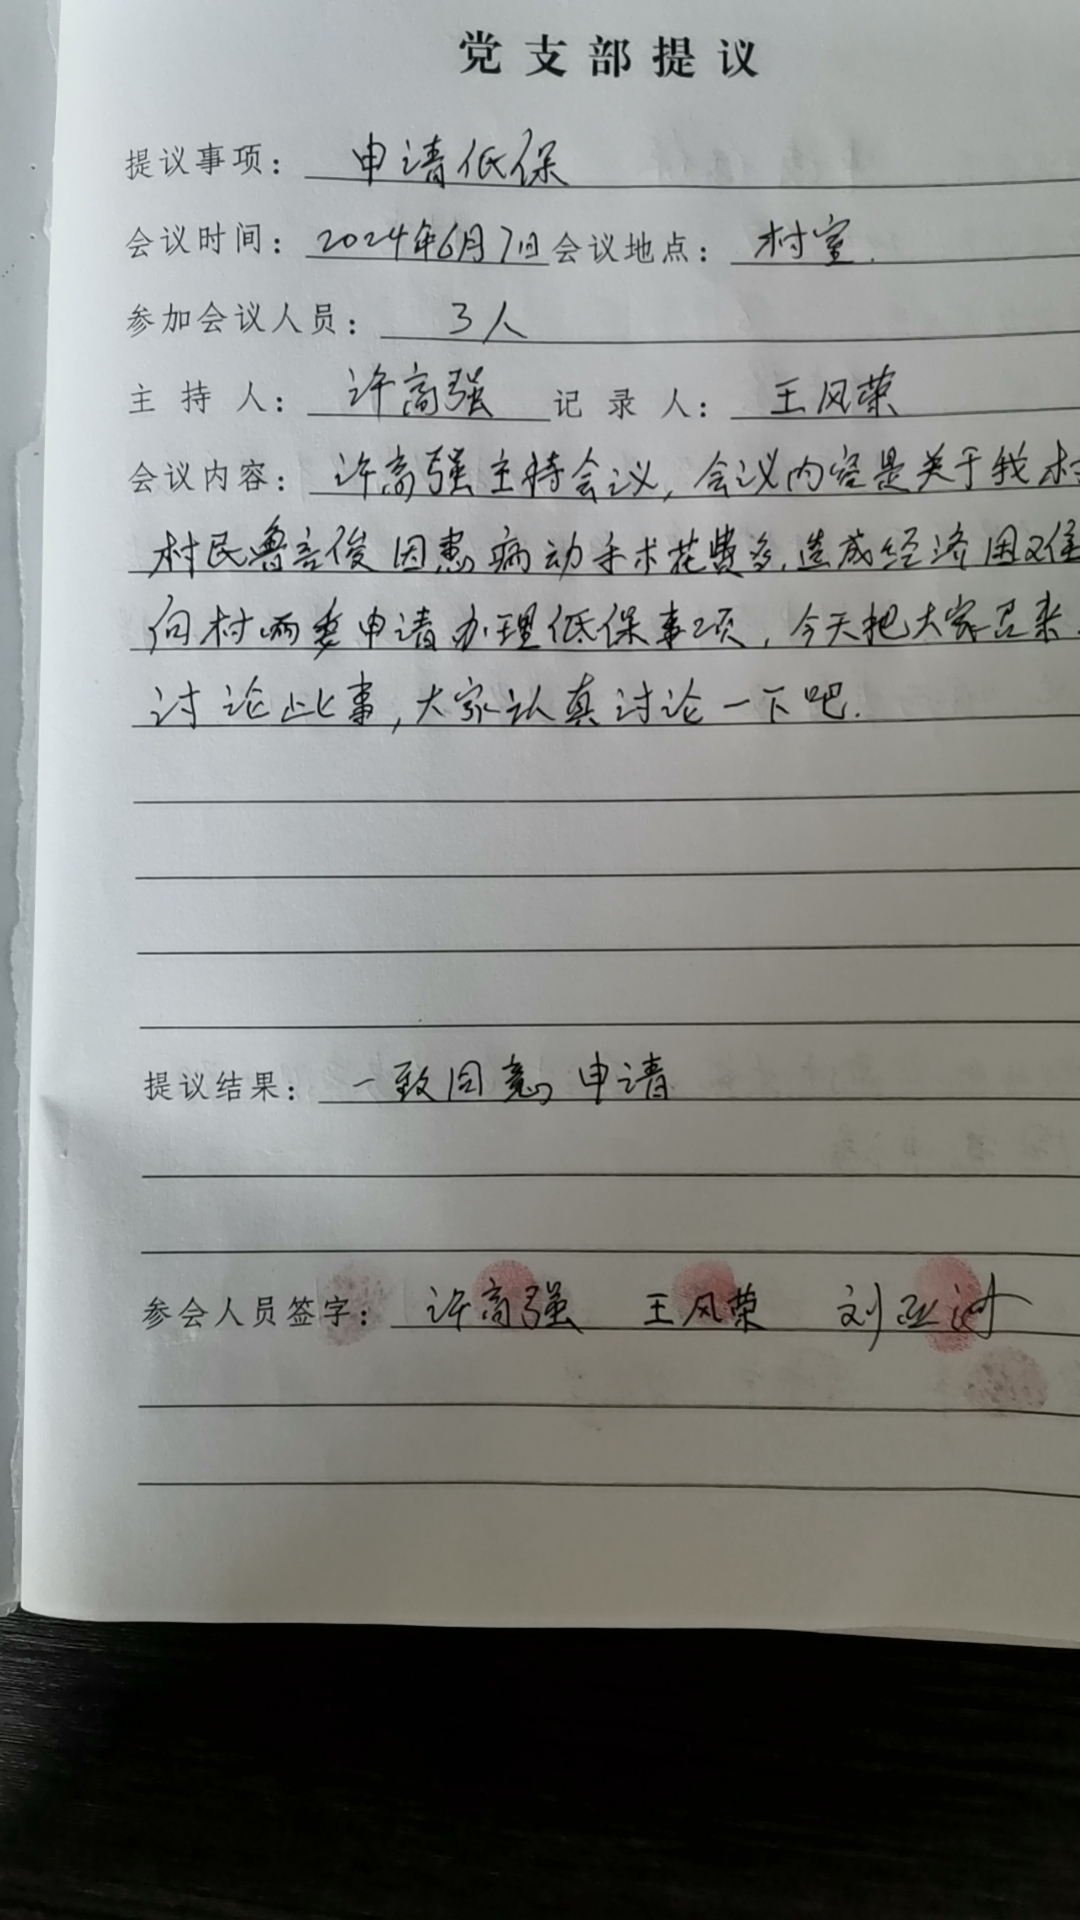 党支部提议
提议事项： 申请低保
会议时间：2024年6月7日 会议地点： 村室.
参加会议人员： 3人
主持人： 许高强 记录人： 王风荣
会议内容： 许高强主持会议, 会议内容是关于我村
村民鲁言俊因患病动手术花费多,造成经济困难
向村两委申请办理低保事项, 今天把大家召来.
讨论此事, 大家认真讨论一下吧.
提议结果： 一致同意申请
参会人员签字： 许高强 王风荣 刘